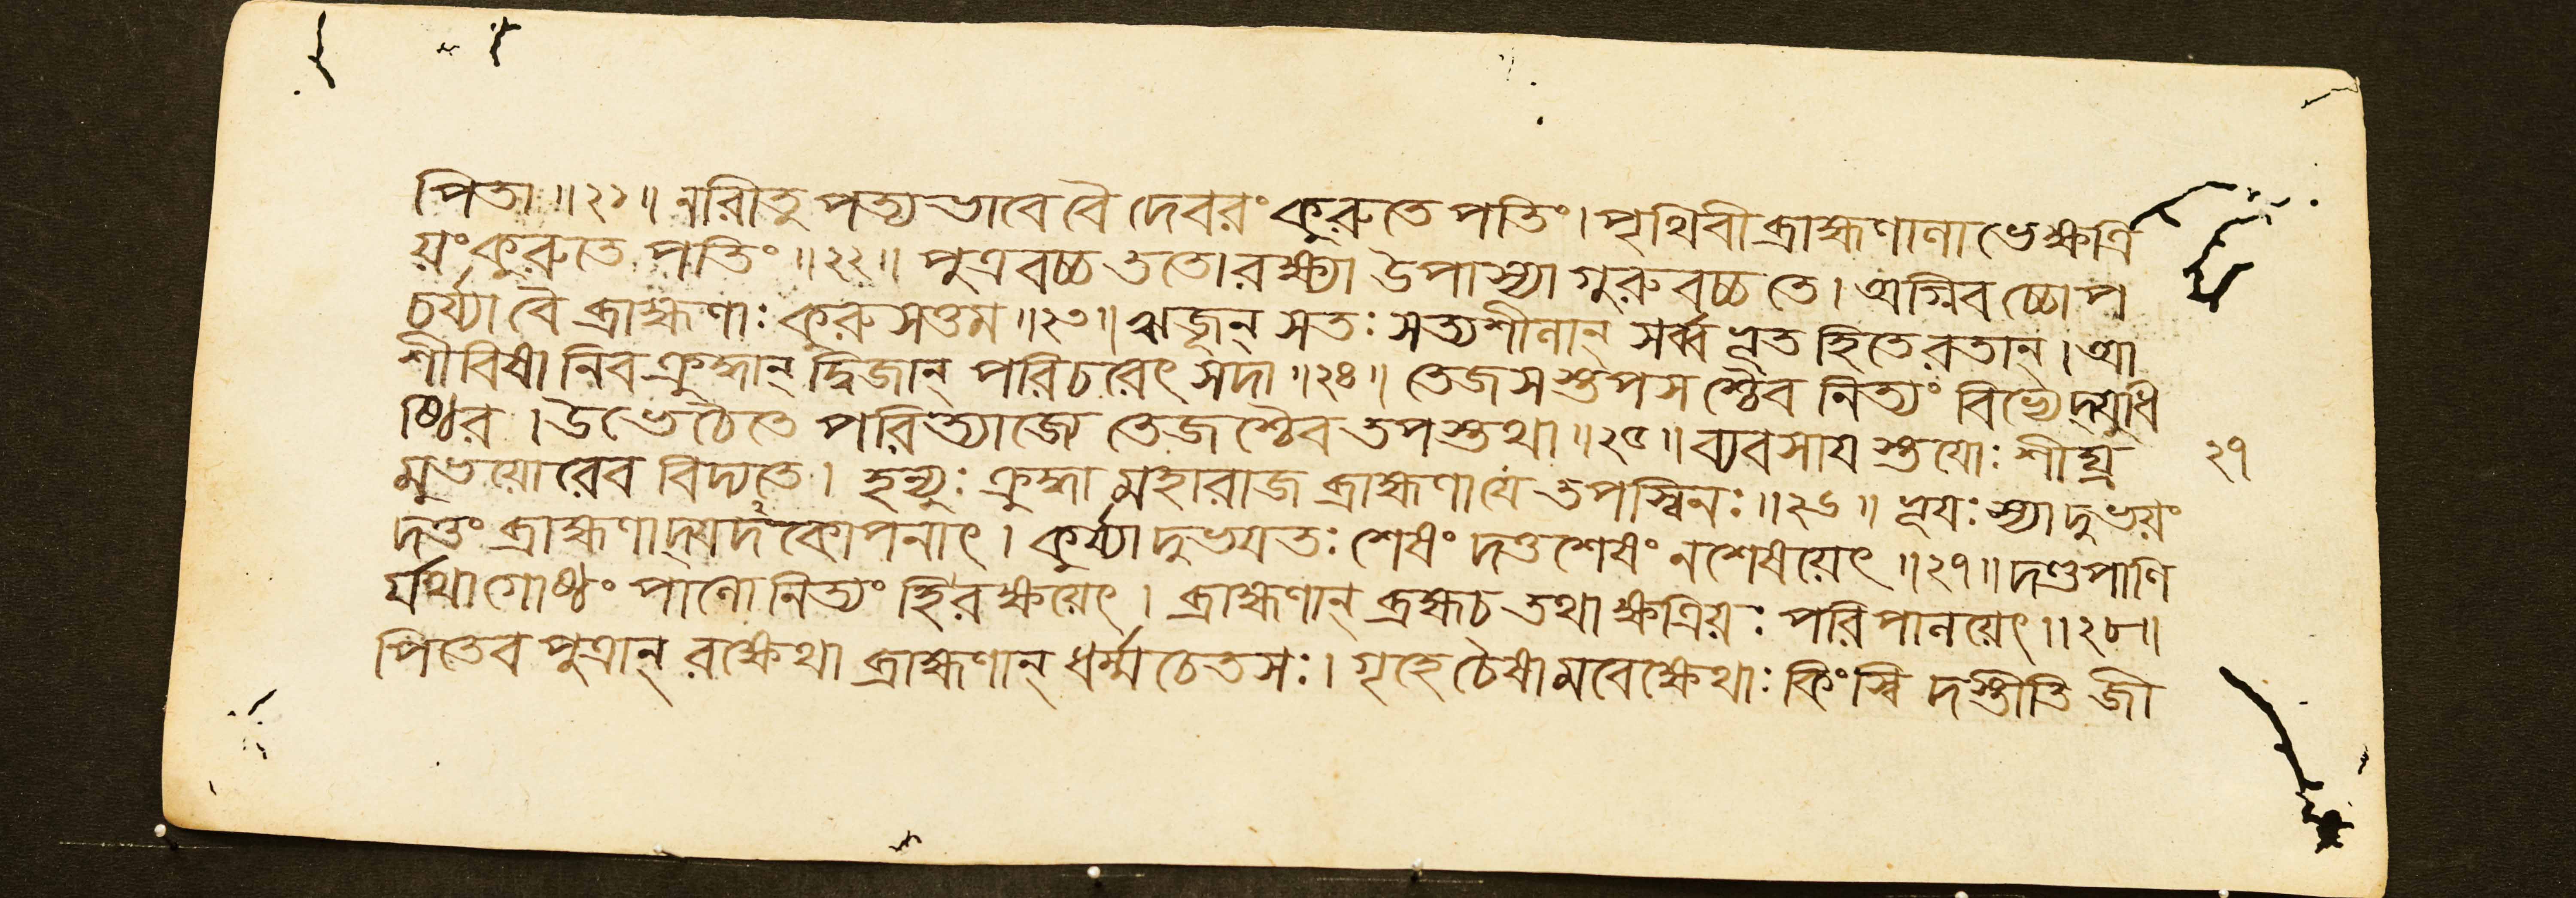 পিতা ॥২১॥ নরীতু পত্যভাবে বৈ দেবরং কুরুতে পতিং। পৃথিবী ব্রাহ্মণানাভে ক্ষত্রি
য়ং কুরুতে পতিং ॥২২॥ পুত্রবচ্চ ততো রক্ষ্যা উপাস্যা গুরুবচ্চ তে। অগ্নিবচ্চোপ
চর্য্যা বৈ ব্রাহ্মণাঃ কুরুসত্তম ॥২৩॥ ঋজূন্ সতঃ সত্যশীলান্ সর্ব্বভূতহিতে রতান্। আ
শীবিষানিব ক্রুদ্ধান্ দ্বিজান্ পরিচরেৎ সদা ॥২৪॥ তেজসস্তপসশ্চৈব নিত্যং বিভ্যেদ্যুধি
ষ্ঠির। উভে চৈতে পরিত্যাজ্যে তেজশ্চৈব তপস্তথা ॥২৫॥ ব্যবসায়স্তয়োঃ শীঘ্র
২৭
মুভয়োরেব বিদ্যতে। হন্যুঃ ক্রুদ্ধা মহারাজ ব্রাহ্মণা যে তপস্বিনঃ ॥২৬॥ ভূয়ঃ স্যাদুভয়ং
দত্তং ব্রাহ্মণাদ্যদকোপনাৎ। কুর্য্যাদুভয়তঃ শেষং দত্তশেষং ন শেষয়েৎ ॥২৭॥ দণ্ডপাণি
র্যথা গোষ্ঠং পালো নিত্যং হি রক্ষয়েৎ। ব্রাহ্মণান্ ব্রহ্ম চ তথা ক্ষত্রিয়ঃ পরিপালয়েৎ ॥২৮॥
পিতেব পুত্রান্ রক্ষেথা ব্রাহ্মণান্ ধর্ম্মচেতসঃ। গৃহে চৈষামবেক্ষেথাঃ কিংস্বিদস্তীতি জী